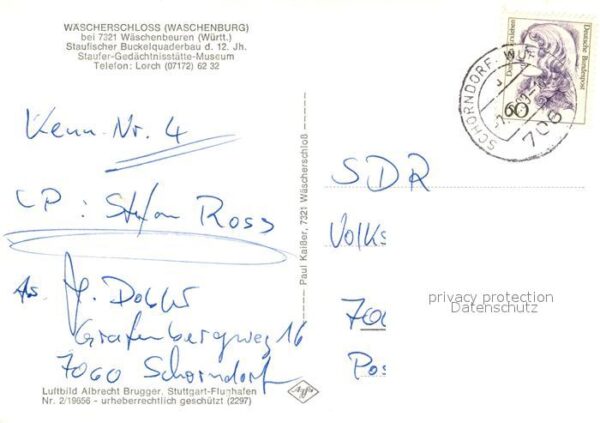 WÄSCHERSCHLOSS (WASCHENBURG)
bei 7321 Wäschenbeuren (Württ.)
Staufischer Buckelquaderbau d. 12. Jh.
Staufer-Gedächtnisstätte-Museum
Telefon: Lorch (07172) 62 32
Kenn-Nr. 4
LP: Stefan Ross
Grafenbergweg 16
7060 Schorndorf
Luftbild Albrecht Brugger, Stuttgart-Flughafen
Nr. 2/19656 - urheberrechtlich geschützt (2297)
Paul Kaißer, 7321 Wäscherschloß
Agfa
Deutsche Bundespost
60
SCHORNDORF, WÜRTT
706
SDR
Volks
70
Pos
privacy protection
Datenschutz